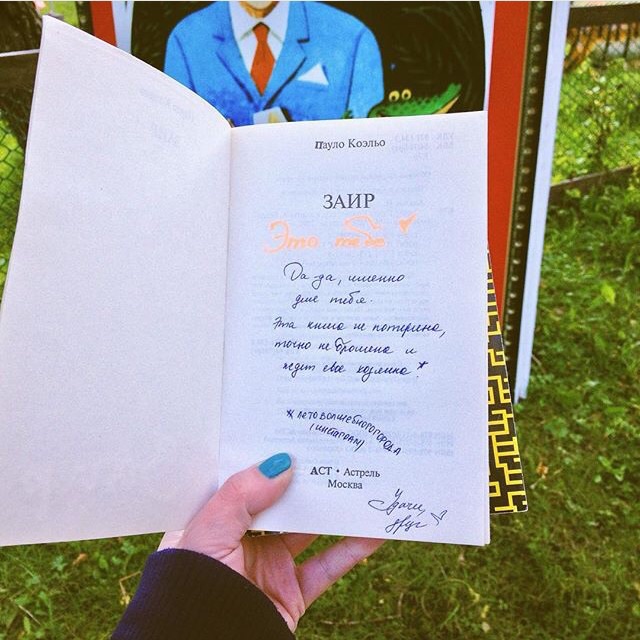 Пауло Коэльо
ЗАИР
Это тебе
Да да, именно
для тебя.
Эта книга не потеряна,
точно не брошена и
ждёт своего хозяина*
* ЛЕТОВОЛШЕБНОГОГОРОДА
(ИНСТАГРАМ)
АСТ • Астрель
Москва
Удачи,
друг